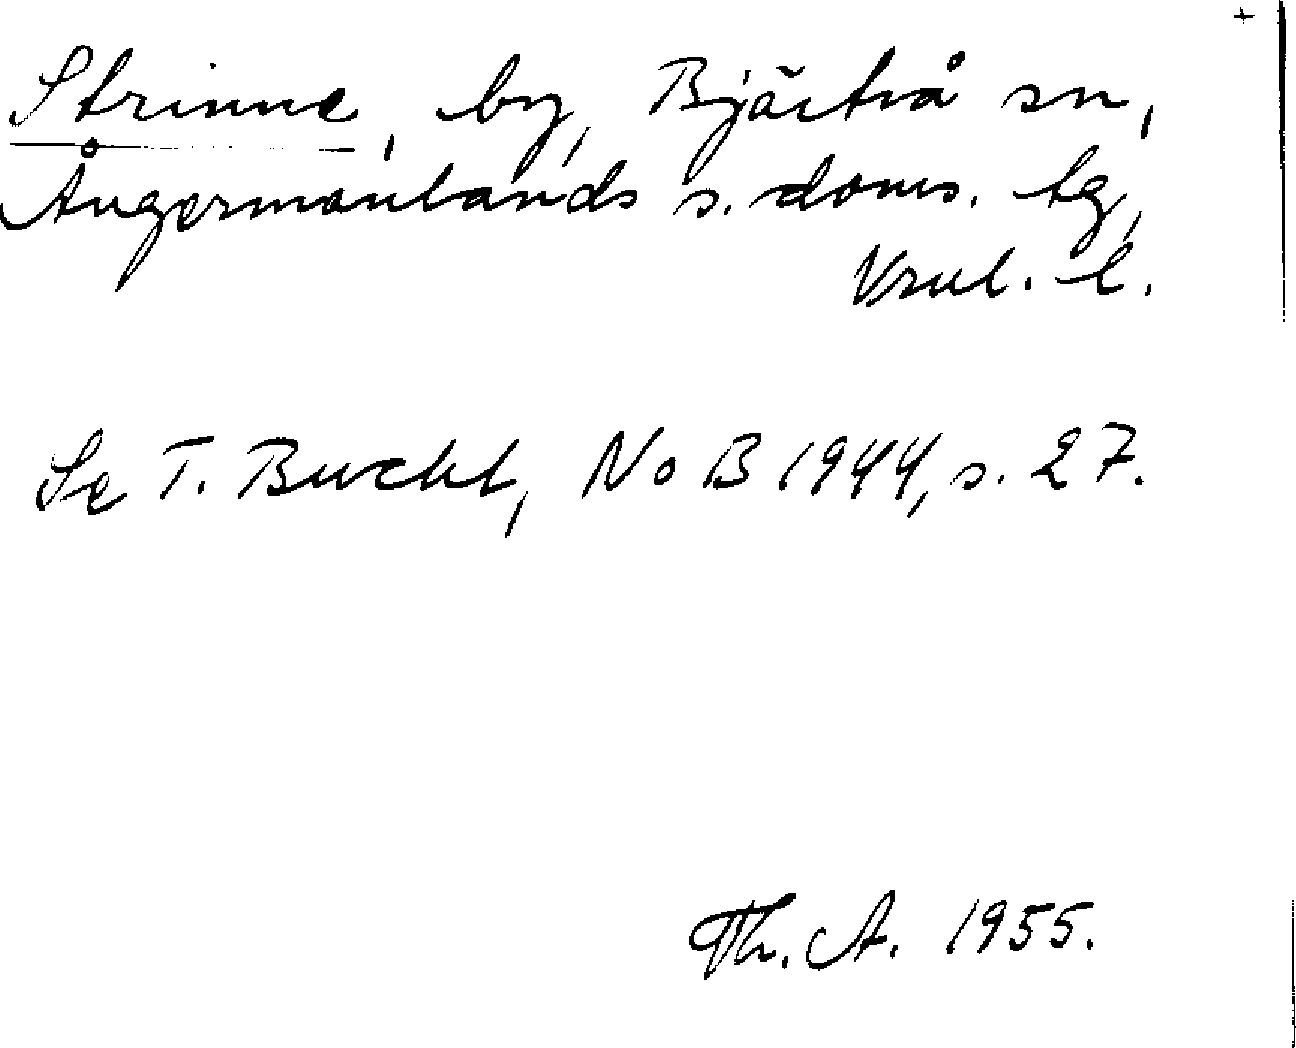 +
Strinne, by, Bjärtrå sn,
Ångermanlands s. doms. tg,
Vrnl. l.
Se T. Bucht, NoB 1944, s. 27.
Th. A. 1955.